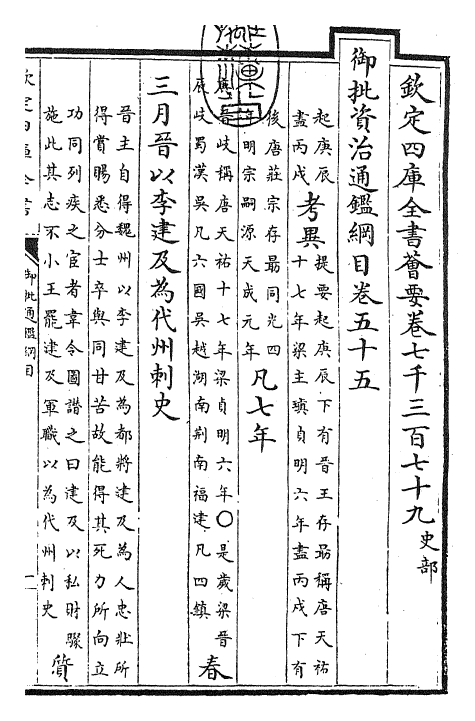 欽定四庫全書薈要卷七千三百七十九 史部
御批資治通鑑綱目卷五十五
起庚辰
盡丙戌
考異
提要起庚辰下有晉王存勗稱唐天祐
十七年梁主瑱貞明六年盡丙戌下有
後唐莊宗存勗同光四
年明宗嗣源天成元年
凡七年
晉岐稱唐天祐十七年梁貞明六年〇是歲梁晉
辰岐蜀漢吳凡六國吳越湖南荆南福建凡四鎮
春
三月晉以李建及為代州刺史
晉主自得魏州以李建及為都將建及為人忠壯所
得賞賜悉分士卒與同甘苦故能得其死力所向立
功同列疾之宦者韋令圖譖之曰建及以私財驟
施此其志不小王罷建及軍職以為代州刺史
質
欽定四庫全書
御批通鑑綱目
一